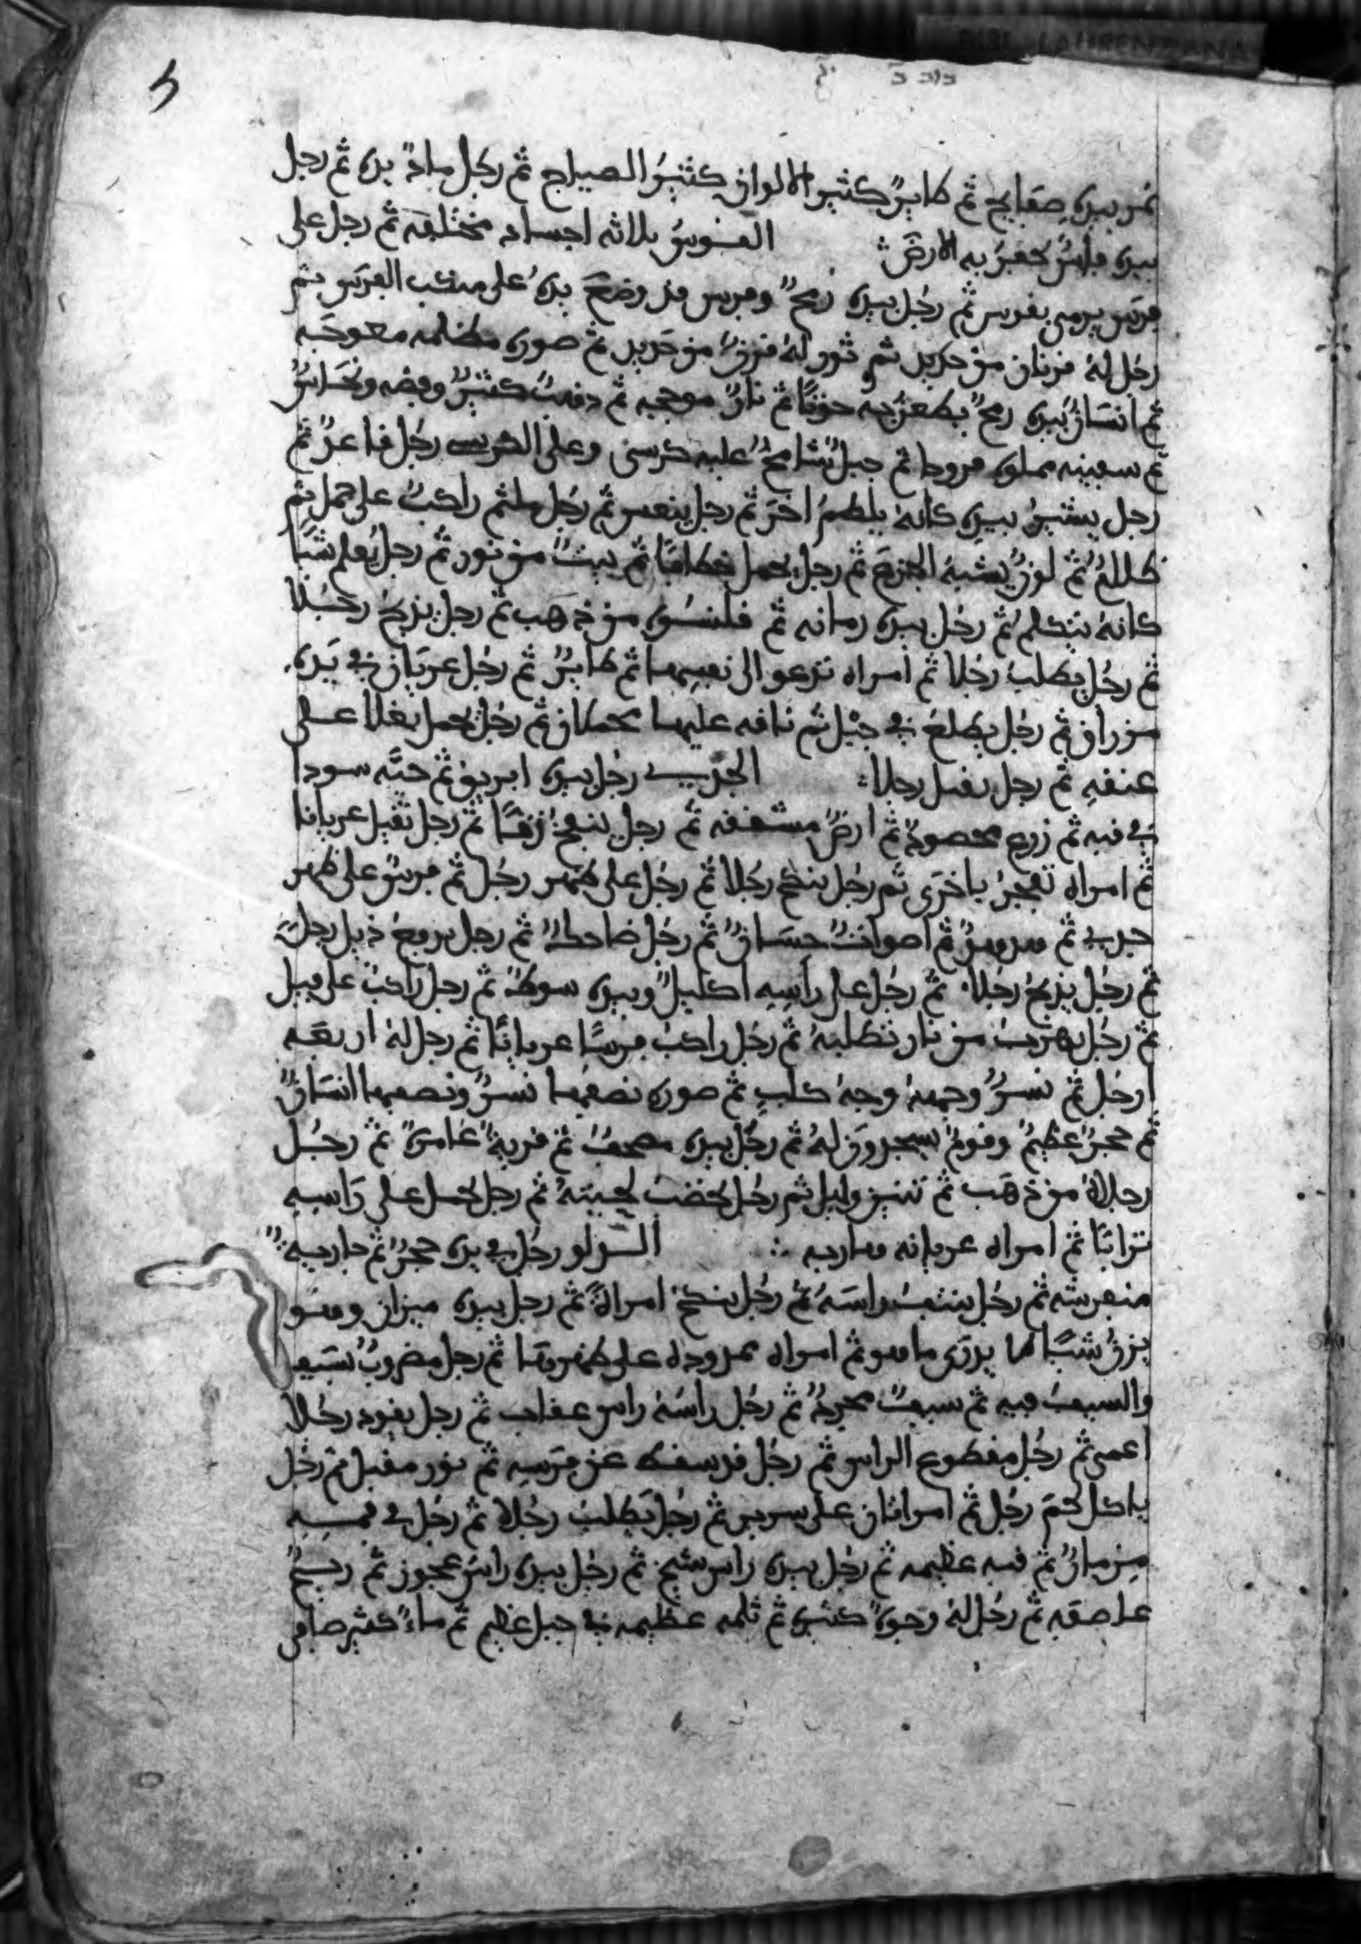 ثم بيده صفايح ثم طاير كثير الالوان كثير الصياح ثم رجل ماد يده ثم رجل
بيده فاس يحفر به الارض القوس ثلاثه اجساد مختلفه ثم رجل على
فرس يرمي بقوس ثم رجل بيده رمح وفرس قد وضع يده على منكب الفرس ثم
رجل له قرنان من حديد ثم ثور له قرن من حديد ثم صوره مظلمه معوجه
ثم انسان بيده رمح يطعن به حوتا ثم نار موججه ثم ذهب كثير وفضه ونحاس
ثم سفينه مملوه قرودا ثم جبل شامخ عليه كرسي وعلى الكرسي رجل قاعد ثم
رجل يشير بيده كانه يلطم اخر ثم رجل ينعس ثم رجل ملثم راكب على جمل ثم
ظلال ثم لون يشبه الجزع ثم رجل يحمل حطاما ثم بيت من نور ثم رجل يعلم شيا
كانه يتكلم ثم رجل بيده رمانه ثم قلنسوه من ذهب ثم رجل يذبح رجلا
ثم رجل يطلب رجلا ثم امراه تدعو الى نفسها ثم طاير ثم رجل عريان في يده
مزراق ثم رجل يطلع في جبل ثم ناقه عليها محملان ثم رجل يحمل بغلا على
عنقه ثم رجل يقتل رجلا الجدي رجل بيده ابريق ثم حيه سودا
في فيه ثم زرع محصود ثم ارض مشققه ثم رجل ينفخ زقا ثم رجل يقبل عريانا
ثم امراه تفجر باخرى ثم رجل ينكح رجلا ثم رجل على ظهر رجل ثم فرس على ظهر
ثم اصوات حسان ثم رجل ضاحك ثم رجل يرفع ذيل رجل
ثم رجل يذبح رجلا ثم رجل على راسه اكليل وبيده سوط ثم رجل راكب على فيل
ثم رجل يهرب من نار تطلبه ثم رجل راكب فرسا عريانا ثم رجل له اربعه
ارجل ثم نسر وجهه وجه كلب ثم صوره نصفها نسر ونصفها انسان
ثم حجر عظيم وقوم يسجدون له ثم رجل بيده مصحف ثم قريه عامره ثم رجل
رجلاه من ذهب ثم تنين وليل ثم رجل يخضب لحيته ثم رجل يحمل على راسه
ترابا ثم امراه عريانه هاربه الدلو رجل في يده حجر ثم جاريه
مفترشه ثم رجل ينتف راسه ثم رجل ينكح امراة ثم رجل بيده ميزان وهو
يزن شيا لا يدرى ما هو ثم امراه ممدوده على ظهرها ثم رجل مضروب بسيف
والسيف فيه ثم سيف مجرد ثم رجل راسه راس عقاب ثم رجل يقود رجلا
اعمى ثم رجل مقطوع الراس ثم رجل قد سقط عن فرسه ثم نور مقبل ثم رجل
ياكل لحم رجل ثم امراتان على سرير ثم رجل يطلب رجلا ثم رجل في قميصه
ثم قبه عظيمه ثم رجل بيده راس شيخ ثم رجل بيده راس عجوز ثم ريح
عاصفه ثم رجل له وجوه كثيره ثم ثلمه عظيمه في جبل عظيم ثم ماء كثير صافي